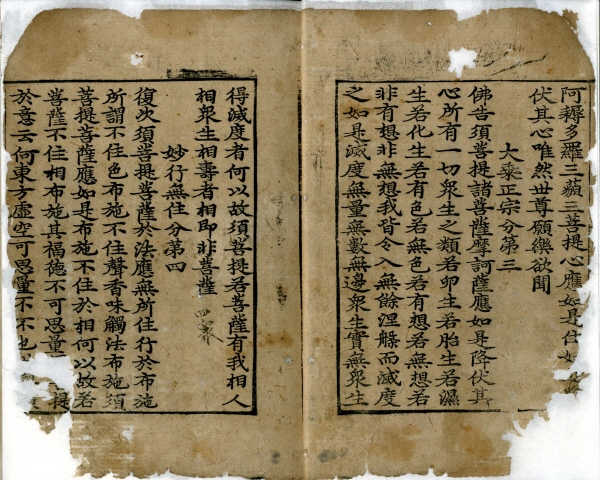 阿耨多羅三藐三菩提心應如是住如
伏其心唯然世尊願樂欲聞
大乘正宗分第三
佛告須菩提諸菩薩摩訶薩應如是降伏其
心所有一切衆生之類若卵生若胎生若濕
生若化生若有色若無色若有想若無想若
非有想非無想我皆令入無餘涅槃而滅度
之如是滅度無量無數無邊衆生實無衆生
得滅度者何以故須菩提若菩薩有我相人
相衆生相壽者相即非菩薩
妙行無住分第四
復次須菩提菩薩於法應無所住行於布施
所謂不住色布施不住聲香味觸法布施須
菩提菩薩應如是布施不住於相何以故若
菩薩不住相布施其福德不可思量 提
於意云何東方虛空可思量不不也